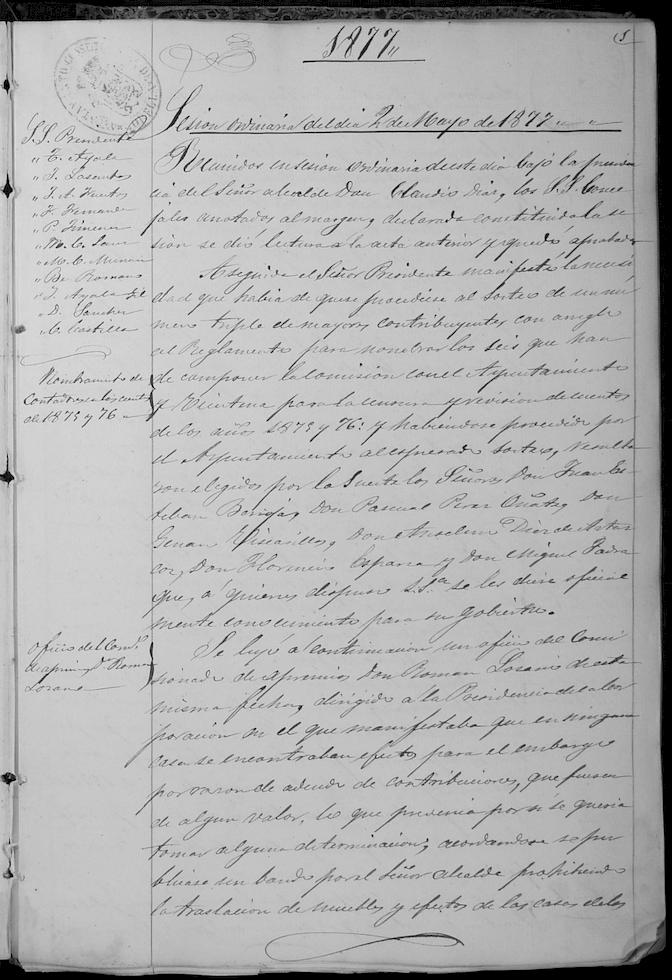 1877
1
Sesion ordinaria del dia 2 de Mayo de 1877
S.S. Presidente
" T. Ayala
" F. Fernandez
" P. Jimenez
" Be Romano
" T. Ayala
" D. Sanchez
" C. Castilla
Nombramiento de
Contadores a las cuentas
de 1875 y 76
Oficio del Comdo
de apremio D. Roman
Losano
Reunidos en sesion ordinaria de este dia bajo la presiden
cia del Señor alcalde Don Claudio Diaz, los S.S. Conce
jales anotados al margen, declarada constituida la se
sion se dió lectura a la acta anterior y quedó aprobada
Aseguida el Señor Presidente manifestó la necesi
dad que habia de que se procediese al sorteo de un nú
mero triple de mayores contribuyentes con arreglo
al Reglamento para nombrar los seis que han
de componer la Comision con el Ayuntamiento
y para la censura y revision de cuentas
de los años 1875 y 76: y habiendose procedido por
el Ayuntamiento al espresado sorteo, resulta
ron elegidos por la suerte los Señores Don Juan Es
teban Don Pascual Perez Oñate, Don
Genaro Don Anselmo Diez de
Don Florencio España y Don Miguel
que, a quienes dispuso S.Sª se les diese oficial
mente conocimiento para su gobierno.
Se leyó a continuacion un oficio del Comi
sionado de apremios Don Roman Losano de esta
misma fecha, dirigido a la Presidencia de la Cor
poración en el que manifestaba que en ninguna
casa se encontraban efectos para el embargo
por razon de adeudo de contribuciones, que fuesen
de algun valor, lo que prevenia por si se queria
tomar alguna determinacion; acordandose se pu
blicase un bando por el Señor alcalde prohibiendo
la traslacion de muebles y efectos de las casas de los